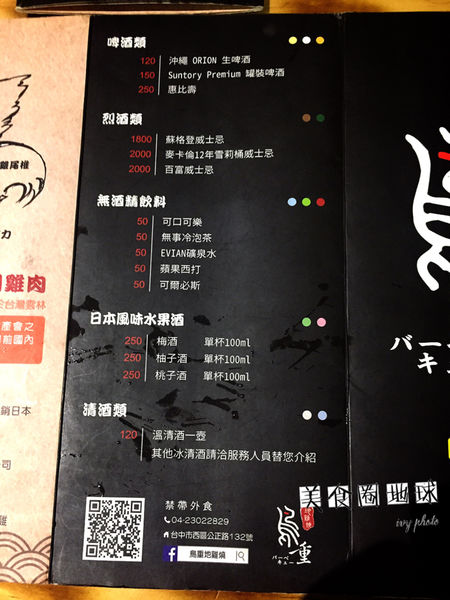 啤酒類
120 沖繩 ORION 生啤酒
150 Suntory Premium 罐裝啤酒
250 惠比壽
烈酒類
1800 蘇格登威士忌
2000 麥卡倫12年雪莉桶威士忌
2000 百富威士忌
無酒精飲料
50 可口可樂
50 無事冷泡茶
50 EVIAN礦泉水
50 蘋果西打
50 可爾必斯
日本風味水果酒
250 梅酒 單杯100ml
250 柚子酒 單杯100ml
250 桃子酒 單杯100ml
清酒類
120 溫清酒一壺
其他冰清酒請洽服務人員替您介紹
禁帶外食
04-23022829
台中市西區公正路132號
鳥重地雞燒
鳥重
バーベ
キュー
雞尾椎
力
雞肉
於台灣雲林
產會之
前國內
銷日本
司
雞
バーベ
キ
美食圈地球
ivy photo